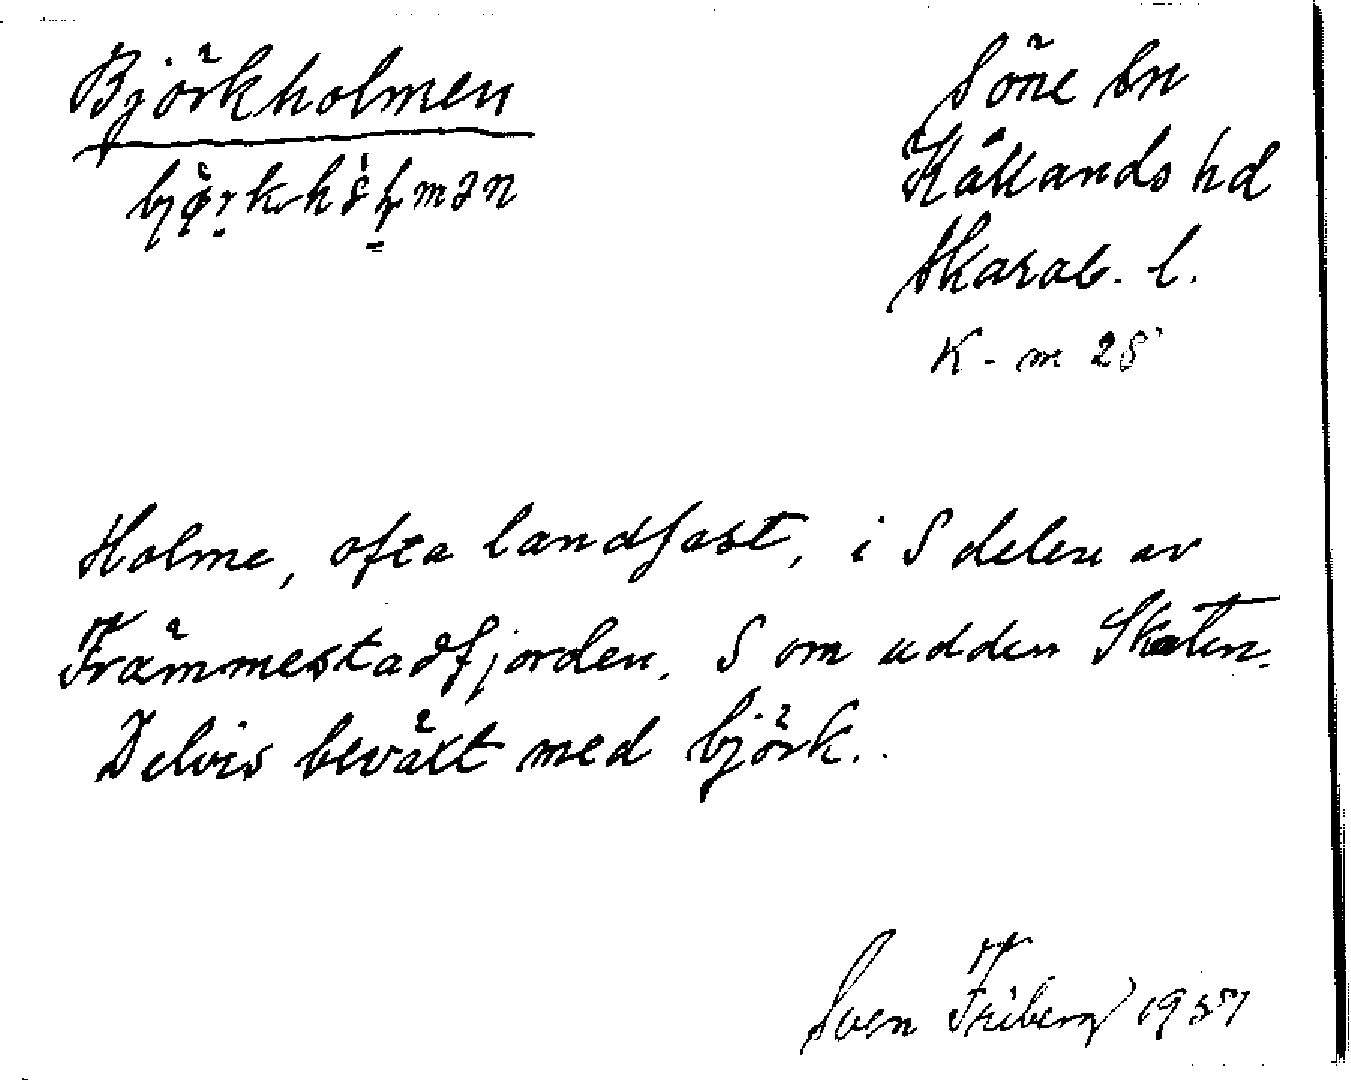 Björkholmen
Söne sn
Kållands hd
Skarab. l.
K-m 28
Holme, ofta landfast, i S delen av
Främmestadfjorden, S om udden Skaten.
Delvis beväxt med björk.
Sven Friberg 1937